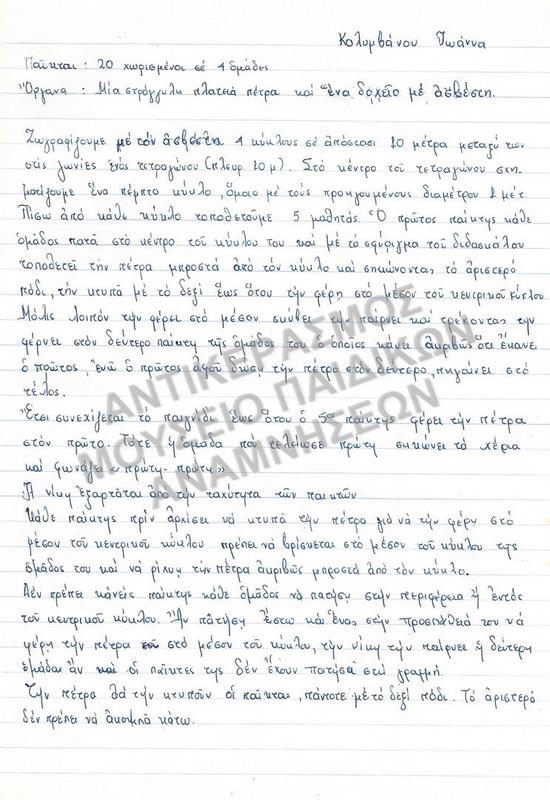 Κολυμβάνου Ἰωάννα
Παῖκται : 20 χωρισμένοι σέ 4 ὁμάδες
Ὄργανα : Μία στρόγγυλη πλατειά πέτρα καί ἕνα δοχεῖο μέ ἀσβέστη.
Ζωγραφίζουμε μέ τόν ἀσβέστη 4 κύκλους σέ ἀπόστασι 10 μέτρα μεταξύ των
στίς γωνίες ἑνός τετραγώνου (πλευρ 10 μ). Στό κέντρο τοῦ τετραγώνου σχη-
ματίζουμε ἕνα πέμπτο κύκλο, ὅμοιο μέ τούς προηγουμένους διαμέτρου 1 μέτ.
Πίσω ἀπό κάθε κύκλο τοποθετοῦμε 5 μαθητάς. Ὁ πρῶτος παίκτης κάθε
ὁμάδος πατᾶ στό κέντρο τοῦ κύκλου του καί μέ τό σφύριγμα τοῦ διδασκάλου
τοποθετεῖ τήν πέτρα μπροστά ἀπό τόν κύκλο καί σηκώνοντας τό ἀριστερό
πόδι, τήν κτυπᾶ μέ τό δεξί ἕως ὅτου τήν φέρη στό μέσον τοῦ κεντρικοῦ κύκλου
Μόλις λοιπόν τήν φέρει στό μέσον σκύβει τήν παίρνει καί τρέχοντας τήν
φέρνει στόν δεύτερο παίκτη τῆς ὁμάδος του ὁ ὁποῖος κάνει ἀκριβῶς ὅτι ἔκανε
ὁ πρῶτος, ἐνῶ ὁ πρῶτος ἀφοῦ δώση τήν πέτρα στόν δεύτερο, πηγαίνει στό
τέλος.
Ἔτσι συνεχίζεται τό παιγνίδι ἕως ὅτου ὁ 5ος παίκτης φέρει τήν πέτρα
στόν πρῶτο. Τότε ἡ ὁμάδα πού τελείωσε πρώτη σηκώνει τά χέρια
καί φωνάζει «πρώτη- πρώτη»
Ἡ νίκη ἐξαρτᾶται ἀπό τήν ταχύτητα τῶν παικτῶν
Κάθε παίκτης πρίν ἀρχίσει νά κτυπᾶ τήν πέτρα γιά νά τήν φέρη στό
μέσον τοῦ κεντρικοῦ κύκλου πρέπει νά βρίσκεται στό μέσον τοῦ κύκλου τῆς
ὁμάδος του καί νά ρίψη τήν πέτρα ἀκριβῶς μπροστά ἀπό τόν κύκλο.
Δέν πρέπει κανείς παίκτης κάθε ὁμάδος νά πατήση στήν περιφέρεια ἤ ἐντός
τοῦ κεντρικοῦ κύκλου. Ἄν πατήση ἔστω καί ἕνας στήν προσπάθειά του νά
φέρη τήν πέτρα στό μέσον τοῦ κύκλου, τήν νίκη τήν παίρνει ἡ δεύτερη
ὁμάδα ἄν οἱ παῖκτες της δέν ἔχουν πατήσει στή γραμμή.
Τήν πέτρα θά τήν κτυποῦν οἱ παῖκται, πάντοτε μέ τό δεξί πόδι. Τό ἀριστερό
δέν πρέπει νά ἀκουμπᾶ κάτω.
ΑΝΤΙΚΕΡΑΣΜΟΣ
ΜΟΥΣΕΙΟ ΠΑΙΔΙΚΩΝ
ΑΝΑΜΝΗΣΕΩΝ